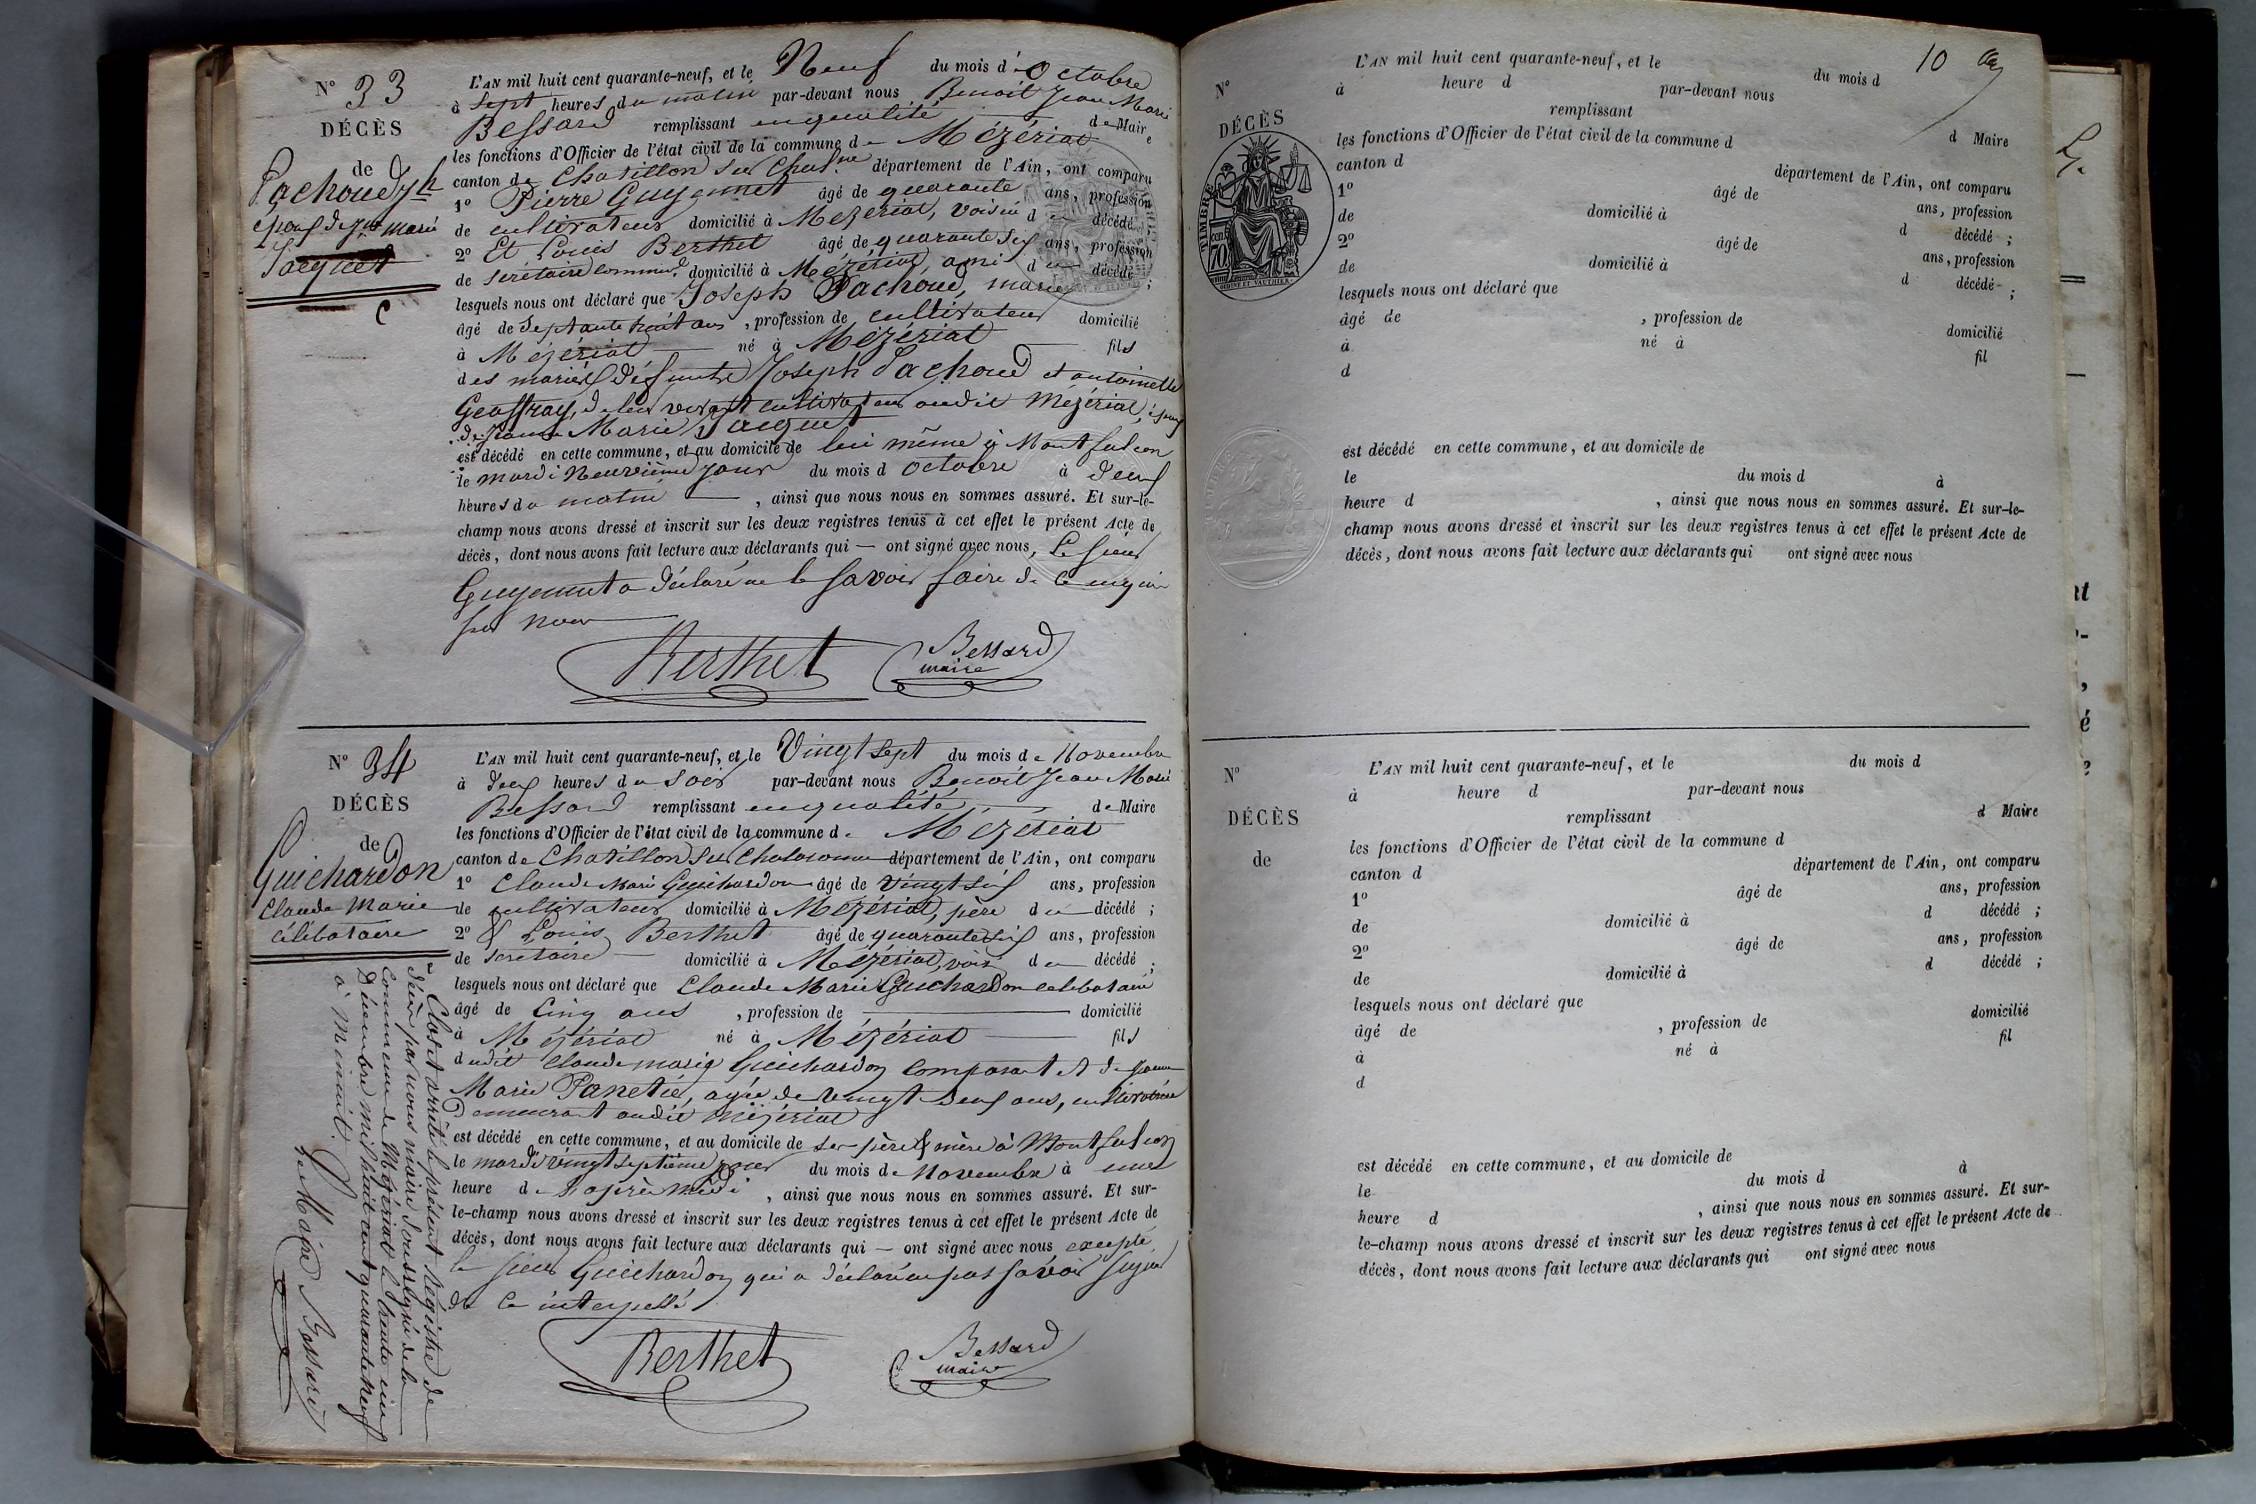 N° 33
DÉCÈS
de
Pachoud Jh
époux de Jne marie
Jacquet
C
L'AN mil huit cent quarante-neuf, et le Neuf du mois d'Octobre
à Sept heures du matin par-devant nous Benoit Jean Marie
Bessard remplissant en qualité de Maire
les fonctions d'Officier de l'état civil de la commune de Mézériat
canton de Chatillon sur Chalne département de l'Ain, ont comparu
1° Pierre Guyennet âgé de quarante ans, profession
de cultivateur domicilié à Mézériat, voisin du décédé
2° Et Louis Berthet âgé de quarante six ans, profession
de secrétaire commun. domicilié à Mézériat, ami du décédé ;
lesquels nous ont déclaré que Joseph Pachoud, marié
âgé de septante huit ans, profession de cultivateur domicilié
à Mézériat né à Mézériat fils
des mariés défunts Joseph Pachoud et antoinette
Geoffray, de leur vivant cultivateurs audit Mézériat, époux
de Jeanne Marie Jacquet
est décédé en cette commune, et au domicile de lui même à Montfalcon
le mardi Neuvième jour du mois d octobre à deux
heures du matin, ainsi que nous nous en sommes assuré. Et sur-le-
champ nous avons dressé et inscrit sur les deux registres tenus à cet effet le présent Acte de
décès, dont nous avons fait lecture aux déclarants qui — ont signé avec nous, Le sieur
Guyennet a déclaré ne le savoir faire de ce enquis
par nous
Berthet
Bessard
maire
N° 34
DÉCÈS
de
Guichardon
Claude Marie
célibataire
L'AN mil huit cent quarante-neuf, et le Vingt sept du mois de Novembre
à deux heures du soir par-devant nous Benoit Jean Marie
Bessard remplissant en qualité de Maire
les fonctions d'Officier de l'état civil de la commune de Mézériat
canton de Chatillon sur Chalaronne département de l'Ain, ont comparu
1° Claude Marie Guichardon âgé de vingt six ans, profession
de cultivateur domicilié à Mézériat, père du décédé ;
2° & Louis Berthet âgé de quarante six ans, profession
de secrétaire domicilié à Mézériat, vois. du décédé ;
lesquels nous ont déclaré que Claude Marie Guichardon célibataire
âgé de Cinq ans, profession de domicilié
à Mézériat né à Mézériat fils
dudit Claude marie Guichardon comparant et de Jeanne
Marie Panetié, agée de vingt deux ans, cultivatrice
Demeurant audit Mézériat
est décédé en cette commune, et au domicile de ses père & mère à Montfalcon
le mardi vingt septième jour du mois de Novembre à une
heure de l'après midi, ainsi que nous nous en sommes assuré. Et sur-
le-champ nous avons dressé et inscrit sur les deux registres tenus à cet effet le présent Acte de
décès, dont nous avons fait lecture aux déclarants qui — ont signé avec nous excepté
le sieur Guichardon qui a déclaré ne pas savoir signer
de ce interpellé
Berthet
Bessard
maire
Clos et arrêté le présent Régistre de
décès par nous maire soussigné de la
Commune de Mézériat le trente un
Décembre mil huit cent quarante neuf
à minuit.
Le Maire Bessard
10
N°
DÉCÈS
TIMBRE
70
L'AN mil huit cent quarante-neuf, et le du mois d
à heure d par-devant nous
remplissant d Maire
les fonctions d'Officier de l'état civil de la commune d
canton d département de l'Ain, ont comparu
1° âgé de ans, profession
de domicilié à d décédé ;
2° âgé de ans, profession
de domicilié à d décédé ;
lesquels nous ont déclaré que
âgé de , profession de domicilié
à né à fil
d
est décédé en cette commune, et au domicile de
le du mois d à
heure d , ainsi que nous nous en sommes assuré. Et sur-le-
champ nous avons dressé et inscrit sur les deux registres tenus à cet effet le présent Acte de
décès, dont nous avons fait lecture aux déclarants qui ont signé avec nous
N°
DÉCÈS
de
L'AN mil huit cent quarante-neuf, et le du mois d
à heure d par-devant nous
remplissant d Maire
les fonctions d'Officier de l'état civil de la commune d
canton d département de l'Ain, ont comparu
1° âgé de ans, profession
de domicilié à d décédé ;
2° âgé de ans, profession
de domicilié à d décédé ;
lesquels nous ont déclaré que
âgé de , profession de domicilié
à né à fil
d
est décédé en cette commune, et au domicile de
le du mois d à
heure d , ainsi que nous nous en sommes assuré. Et sur-
le-champ nous avons dressé et inscrit sur les deux registres tenus à cet effet le présent Acte de
décès, dont nous avons fait lecture aux déclarants qui ont signé avec nous